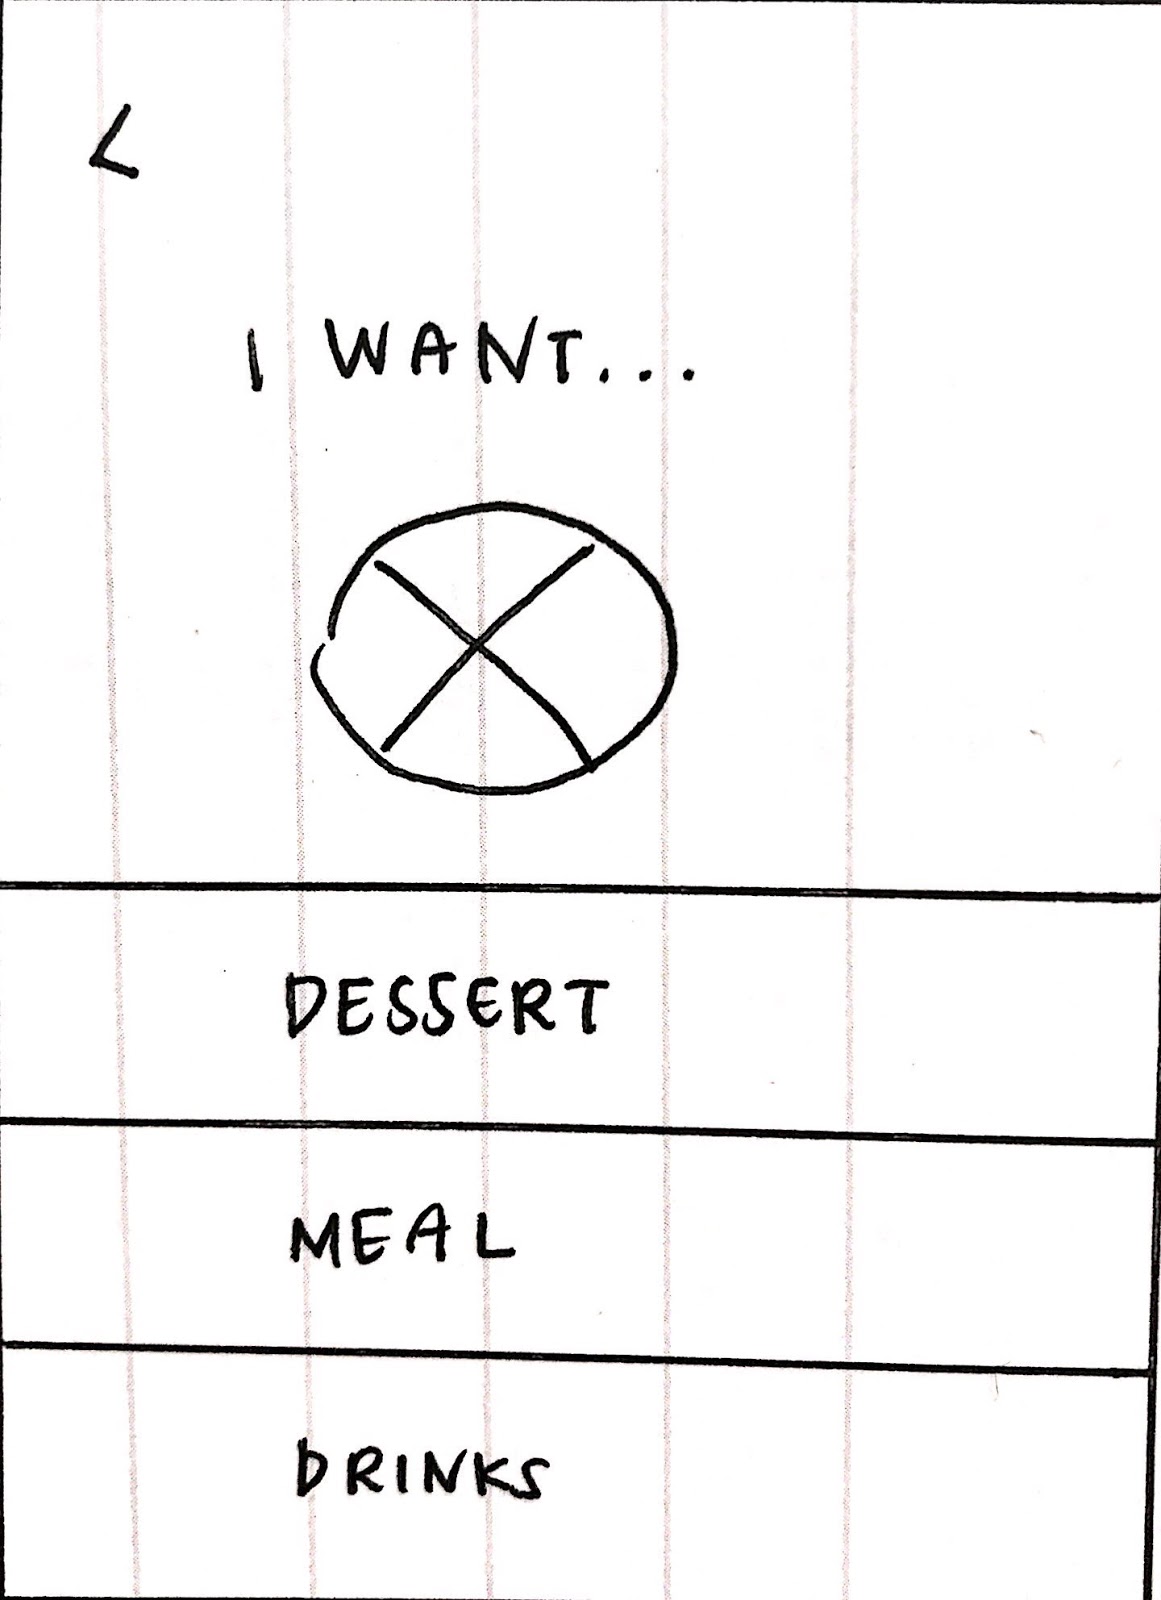 <
I WANT...
DESSERT
MEAL
DRINKS